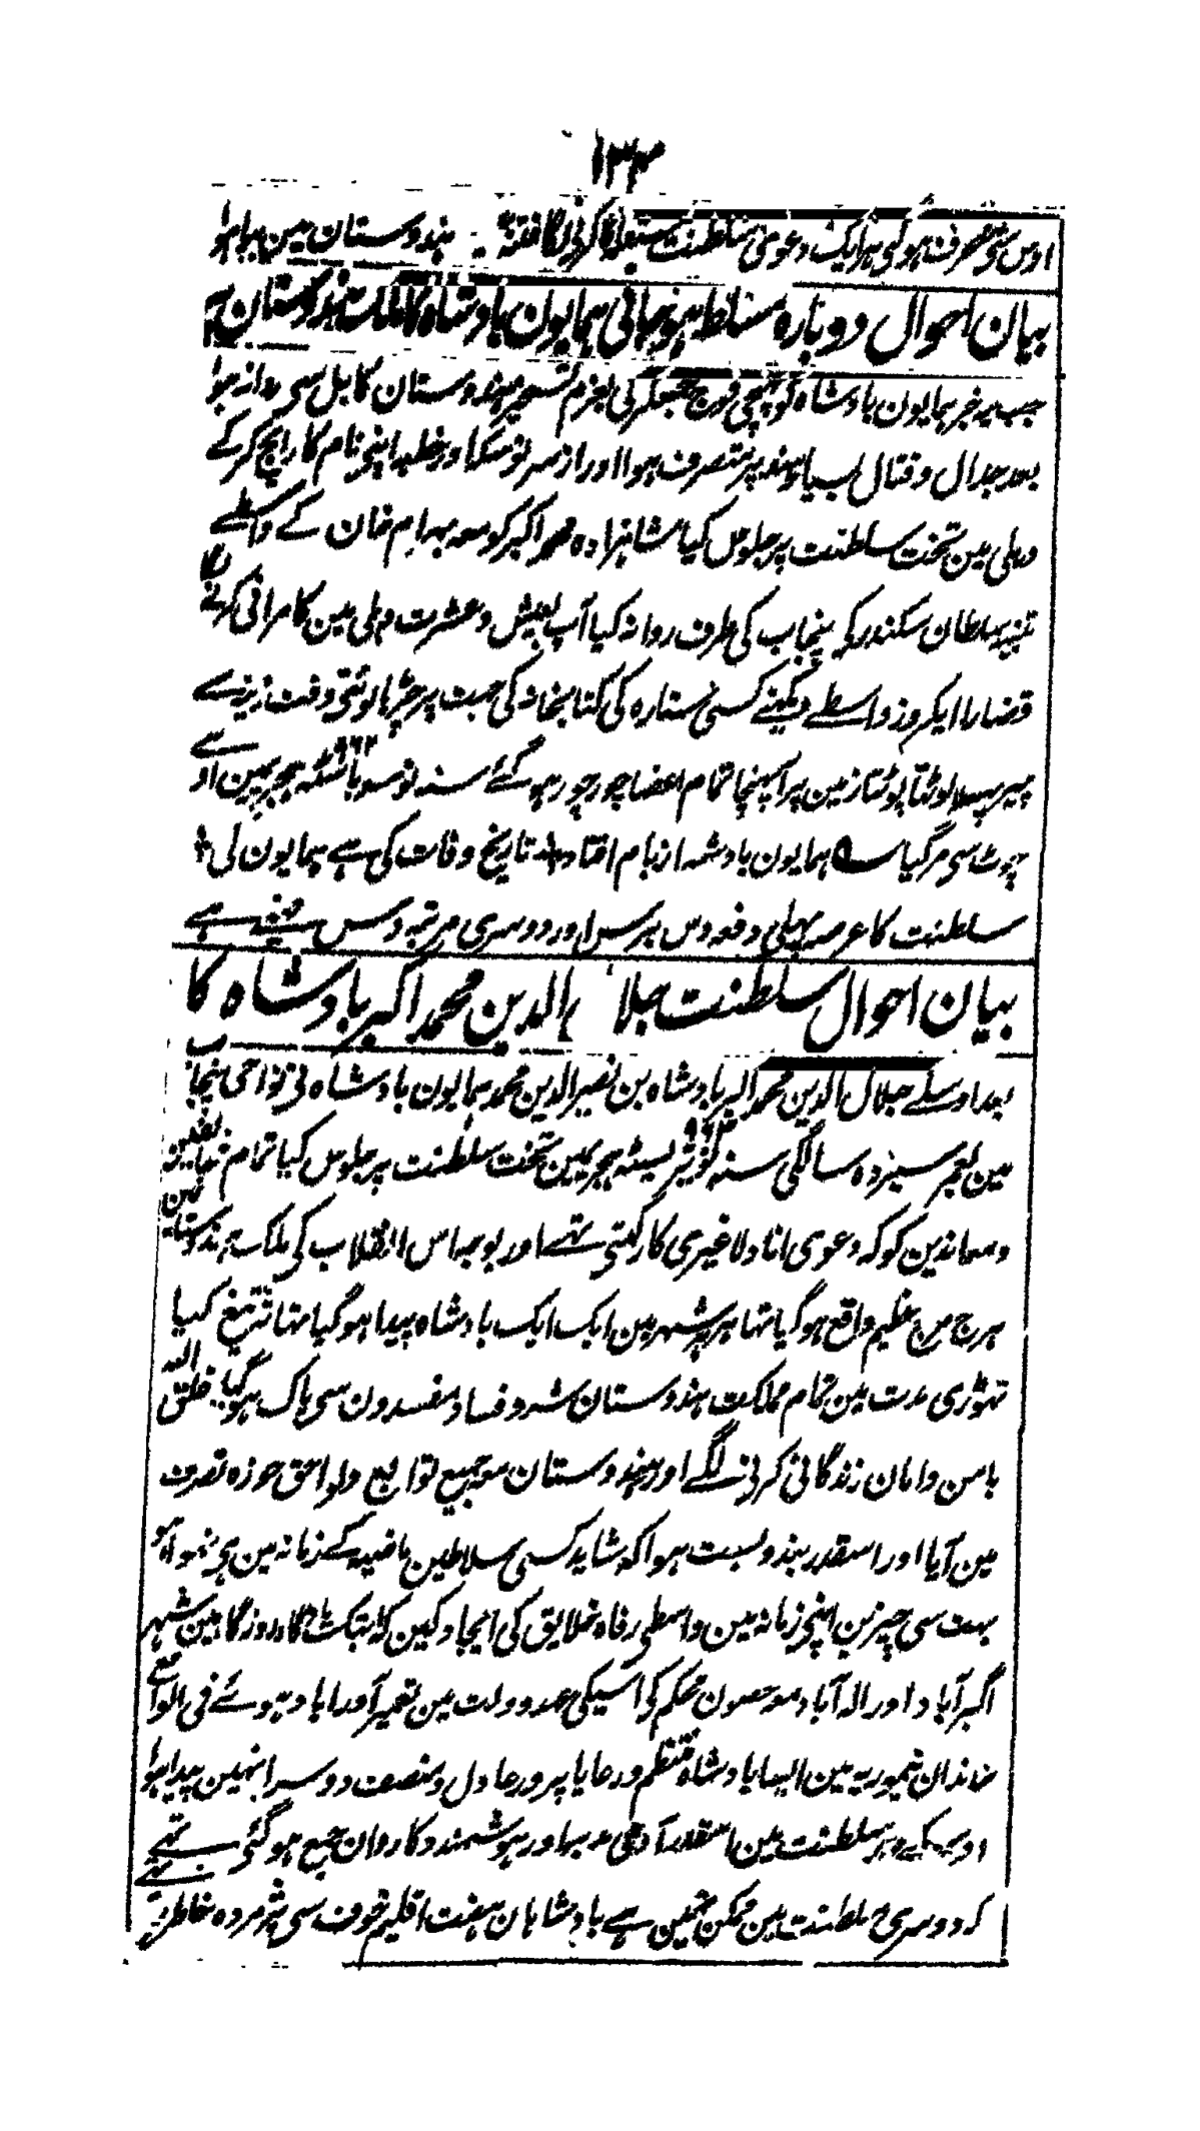 ۱۳۴
اوس سے منحرف ہو گئی ہر ایک دعوی سلطنت کرنی لگا فتنہ ہندوستان مین برپا ہوا
بیان احوال دوبارہ مسلط ہو جانی ہمایون بادشاہ کا مملکت ہندوستان پر
جب یہ خبر ہمایون بادشاہ کو پہنچی فوج جمع کر کی بعزم تسخیر ہندوستان کابل سی روانہ ہوا
بعد جدال و قتال بسیار ہند پر متصرف ہوا اور از سر نو سکہ اور خطبہ اپنی نام کا رایج کر کے
دہلی مین تخت سلطنت پر جلوس کیا شاہزادہ محمد اکبر کو معہ بہرام خان کے واسطے
تنبیہ سلطان سکندر کی پنجاب کی طرف روانہ کیا آپ بعیش و عشرت دہلی مین کامرانی کرنے لگا
قضارا ایکروز واسطے دیکھنے کسی ستارہ کی کتابخانہ کی چہت پر چڑہا لوٹتی وقت زینہ سے
پیر پہسلا لوٹتا پوٹتا زمین پر آ پہنچا تمام اعضا چور چور ہو گئے سنہ نو سو باسٹھ ۹۶۲ ہجریمین اوسی
چوٹ سی مر گیا ہمایون بادشہ از بام افتاد تاریخ وفات کی ہے ہمایون کی
سلطنت کا عرصہ پہلی دفعہ دس برس اور دوسری مرتبہ دس مہینے ہے
بیان احوال سلطنت جلال الدین محمد اکبر بادشاہ کا
بعد اوسکے جلال الدین محمد اکبر بادشاہ بن نصیر الدین محمد ہمایون بادشاہ نی نواحی پنجاب
مین بعمر سیزدہ سالگی سنہ نو سو تریسٹہ ۹۶۳ ہجریمین تخت سلطنت پر جلوس کیا تمام مخالفین
و معاندین کو کہ دعوی انا ولا غیری کا رکہتی تہے اور بوجہ اس انقلاب کی ملک ہندوستان مین
ہرج مرج عظیم واقع ہو گیا تہا ہر ہر شہر مین ایک ایک بادشاہ پیدا ہو گیا تہا تہ تیغ کیا
تہوڑی مدت مین تمام مملکت ہندوستان شر و فساد مفسدون سی پاک ہو گیا خلق اللہ
بامن و امان زندگانی کرنے لگے اور ہندوستان مع جمیع توابع و لواحق حوزہ تصرف
مین آیا اور اسقدر بندوبست ہوا کہ شاید کسی سلاطین ماضیہ کے زمانہ مین بہی نہوا ہو
بہت سی چیزین اپنی زمانہ مین واسطی رفاہ خلایق کی ایجاد کین کہ ابتک روزگار مین شہر
اکبر آباد اور الہ آباد مع حصون محکم کی اسیکی عہد دولت مین تعمیر اور اباد ہوئے فی الواقع
خاندان تیموریہ مین ایسا بادشاہ منتظم و رعایا پرور عادل و منصف دوسرا نہین پیدا ہوا
اوسکے سلطنت مین اسقدر آدمی مدبر اور ہوشمند و کاروان جمع ہو گئی تہے
کہ دوسری سلطنت مین ممکن نہین ہے بادشاہان ہفت اقلیم خوف سی پژمردہ خاطر